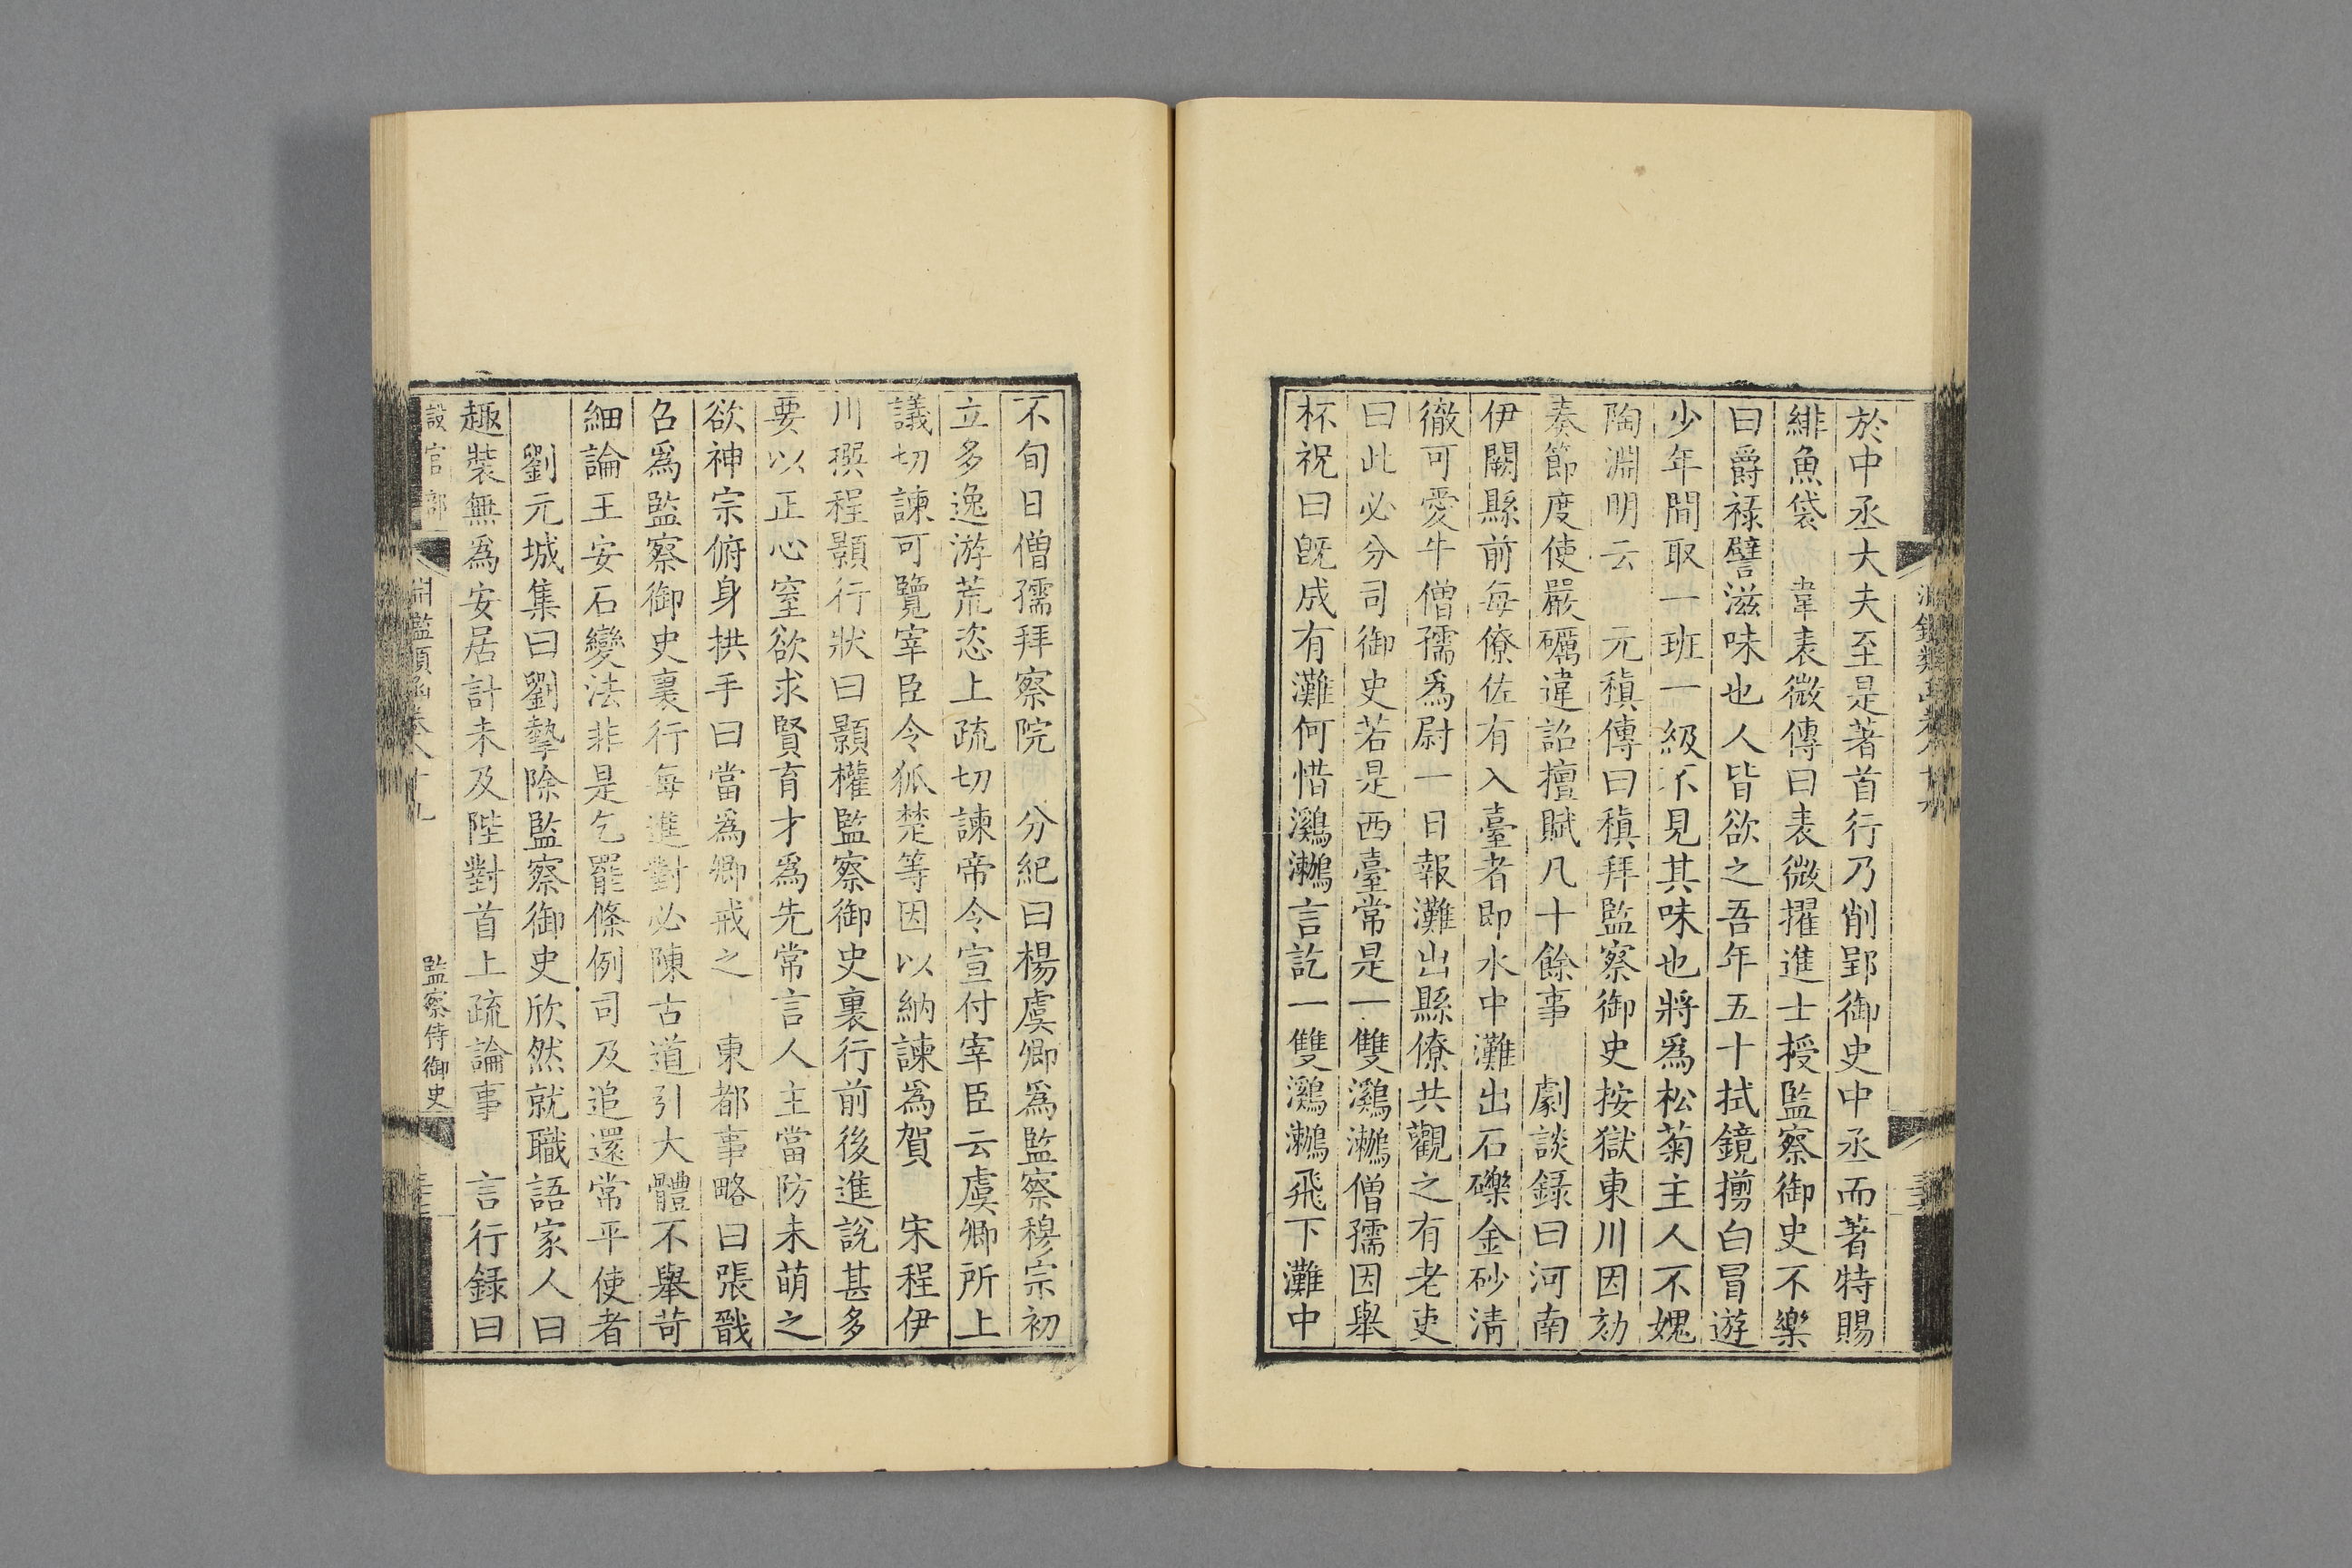 於中丞大夫至是著首行乃削郢御史中丞而著特賜
緋魚袋 韋表微傳曰表微擢進士授監察御史不樂
曰爵祿譬滋味也人皆欲之吾年五十拭鏡揃白冒遊
少年間取一班一級不見其味也將爲松菊主人不媿
陶淵明云 元稹傳曰稹拜監察御史按獄東川因劾
奏節度使嚴礪違詔擅賦凡十餘事 劇談録曰河南
伊闕縣前每僚佐有入臺者即水中灘出石礫金砂清
徹可愛牛僧孺爲尉一日報灘出縣僚共觀之有老吏
曰此必分司御史若是西臺常是一雙鸂鶒僧孺因舉
杯祝曰旣成有灘何惜鸂鶒言訖一雙鸂鶒飛下灘中
不旬日僧孺拜察院 分紀曰楊虞卿爲監察穆宗初
立多逸游荒恣上疏切諫帝令宣付宰臣云虞卿所上
議切諫可覽宰臣令狐楚等因以納諫爲賀 宋程伊
川撰程顥行狀曰顥權監察御史裏行前後進說甚多
要以正心窒欲求賢育才爲先常言人主當防未萌之
欲神宗俯身拱手曰當爲卿戒之 東都事略曰張戩
召爲監察御史裏行每進對必陳古道引大體不舉苛
細論王安石變法非是乞罷條例司及追還常平使者
劉元城集曰劉摯除監察御史欣然就職語家人曰
趣裝無爲安居計未及陛對首上疏論事 言行録曰
設官部 淵鑑類函卷八十九 監察侍御史